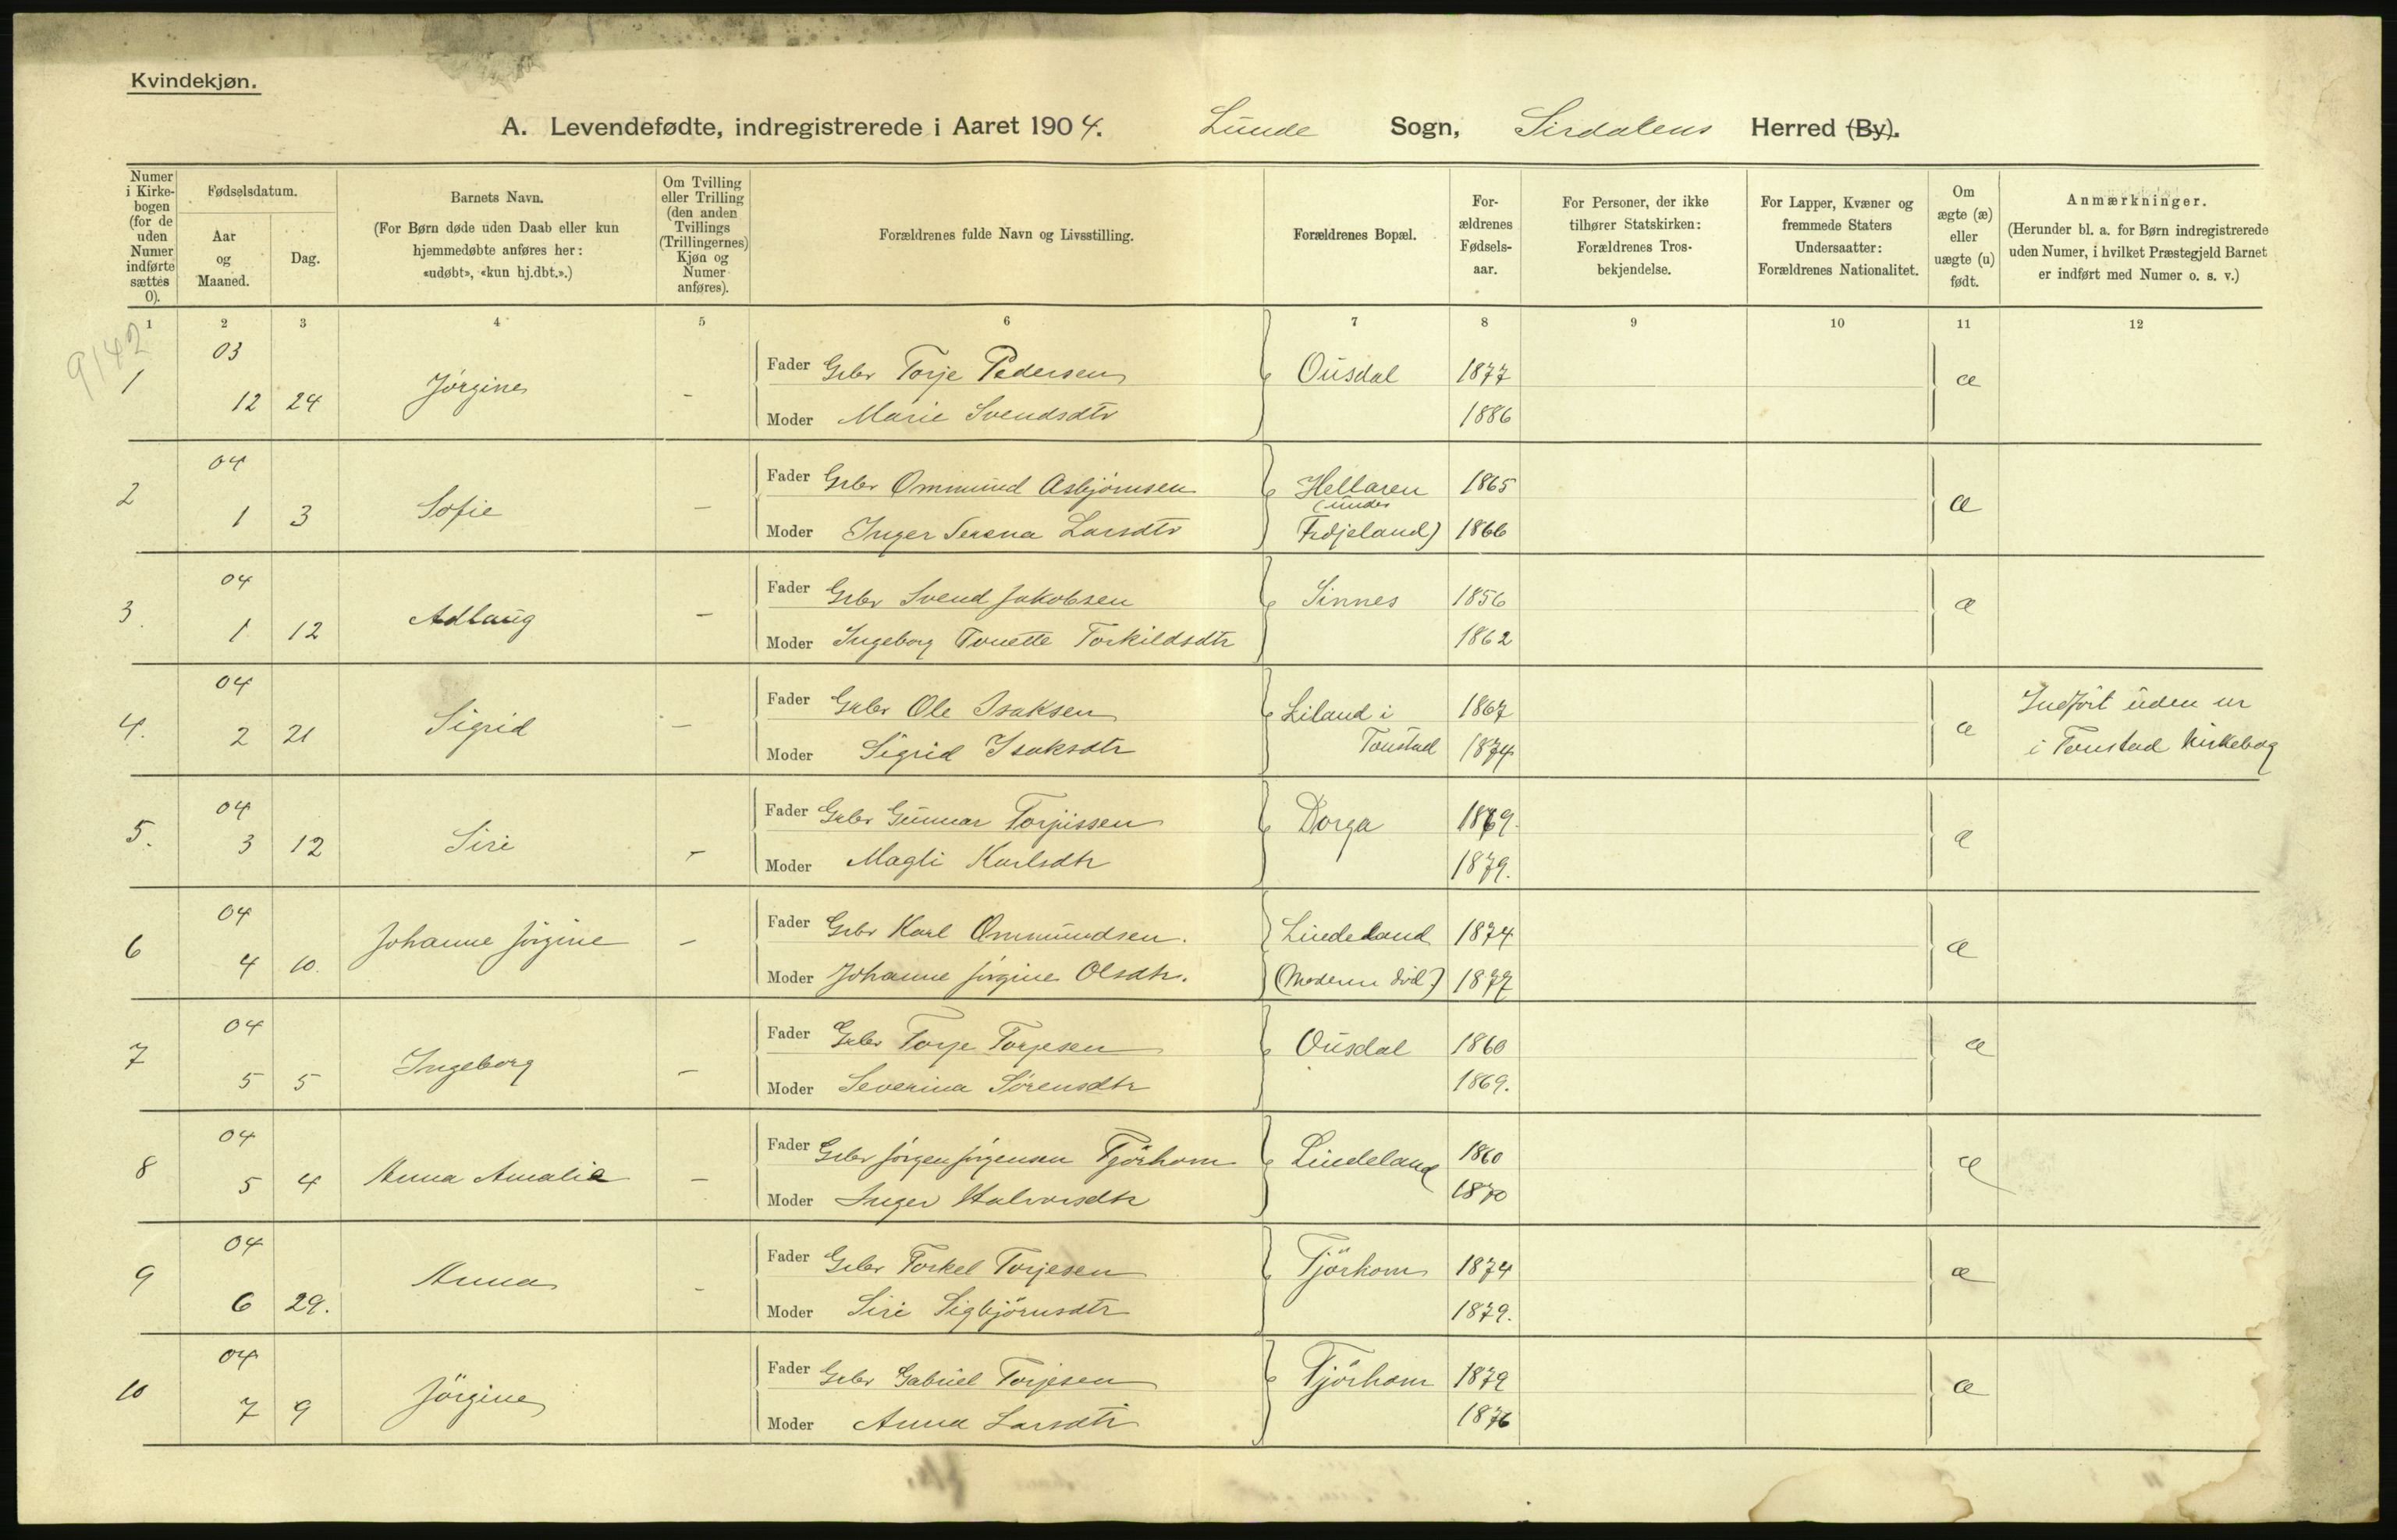 Kvindekjøn.
A. Levendefødte, indregistrerede i Aaret 1904. Lunde Sogn, Sirdalens Herred (By).
Numer i Kirkebogen (for de uden Numer indførte sættes 0).
Fødselsdatum.
Aar og Maaned.
Dag.
Barnets Navn.
(For Børn døde uden Daab eller kun hjemmedøbte anføres her: «udøbt», «kun hj.dbt.».)
Om Tvilling eller Trilling (den anden Tvillings (Trillingernes) Kjøn og Numer anføres).
Forældrenes fulde Navn og Livsstilling.
Forældrenes Bopæl.
Forældrenes Fødselsaar.
For Personer, der ikke tilhører Statskirken: Forældrenes Trosbekjendelse.
For Lapper, Kvæner og fremmede Staters Undersaatter: Forældrenes Nationalitet.
Om ægte (æ) eller uægte (u) født.
Anmærkninger.
(Herunder bl. a. for Børn indregistrerede uden Numer, i hvilket Præstegjeld Barnet er indført med Numer o. s. v.)
1 2 3 4 5 6 7 8 9 10 11 12
9142
1 03 12 24 Jørgine - Fader Gbr Torje Pedersen Ousdal 1877 æ
Moder Marie Svendsdtr 1886
2 04 1 3 Sofie - Fader Gbr Ommund Asbjørnsen Hellaren 1865 æ
(under
Moder Inger Serena Larsdtr Fidjeland) 1866
3. 04 1 12 Adlaug - Fader Gbr Svend Jakobsen Sinnes 1856 æ
Moder Ingeborg Tonette Torkildsdtr 1862
4. 04 2 21 Sigrid - Fader Gbr Ole Isaksen Liland i 1867 æ Indført uden nr
Moder Sigrid Isaksdtr Tonstad 1874 i Tonstad kirkebog
5. 04 3 12 Siri - Fader Gbr Gunnar Torjussen Dorga 1869. æ
Moder Magli Karlsdtr 1879.
6 04 4 10. Johanne Jørgine - Fader Gbr Karl Ommundsen. Lindeland 1874 æ
Moder Johanne Jørgine Olsdtr. (Moderen død) 1877
7 04 5 5 Ingeborg - Fader Gbr Torje Torjesen Ousdal 1860 æ
Moder Severina Sørensdtr 1869.
8 04 5 4 Anna Amalie - Fader Gbr Jørgen Jørgensen Tjørhom Lindeland 1860 æ
Moder Inger Halvorsdtr 1870
9 04 6 29. Anna - Fader Gbr Torkel Torjesen Tjørhom 1874 æ
Moder Siri Sigbjørnsdtr 1879.
10 04 7 9 Jørgine Fader Gbr Gabriel Torjesen Tjørhom 1879 æ
Moder Anna Larsdtr 1876